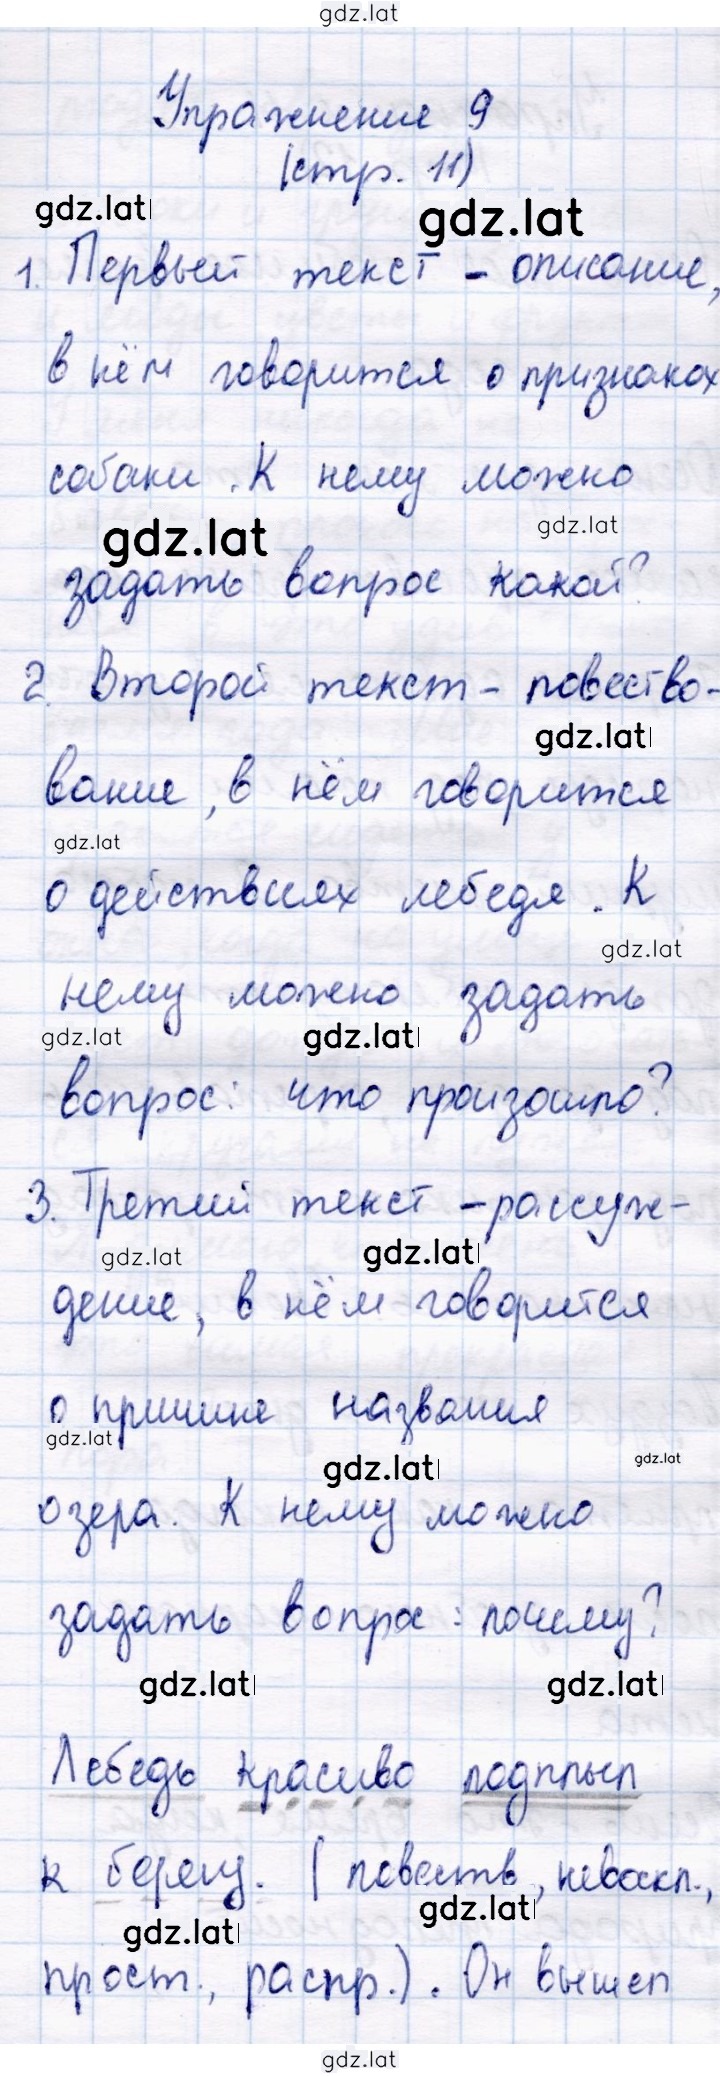 gdz.lat
Упражнение 9
(стр. 11)
gdz.lat gdz.lat
1. Первый текст - описание,
в нём говорится о признаках
собаки. К нему можно
gdz.lat gdz.lat
задать вопрос какой?
2. Второй текст - повество-
gdz.lat
вание, в нём говорится
gdz.lat
о действиях лебедя. К
gdz.lat
нему можно задать
gdz.lat gdz.lat
вопрос: что произошло?
3. Третий текст - рассуж-
gdz.lat gdz.lat
дение, в нём говорится
о причине названия
gdz.lat gdz.lat gdz.lat
озера. К нему можно
задать вопрос: почему?
gdz.lat gdz.lat
Лебедь красиво подплыл
к берегу. (повеств, невоскл.,
gdz.lat gdz.lat
прост., распр.). Он вышел
gdz.lat